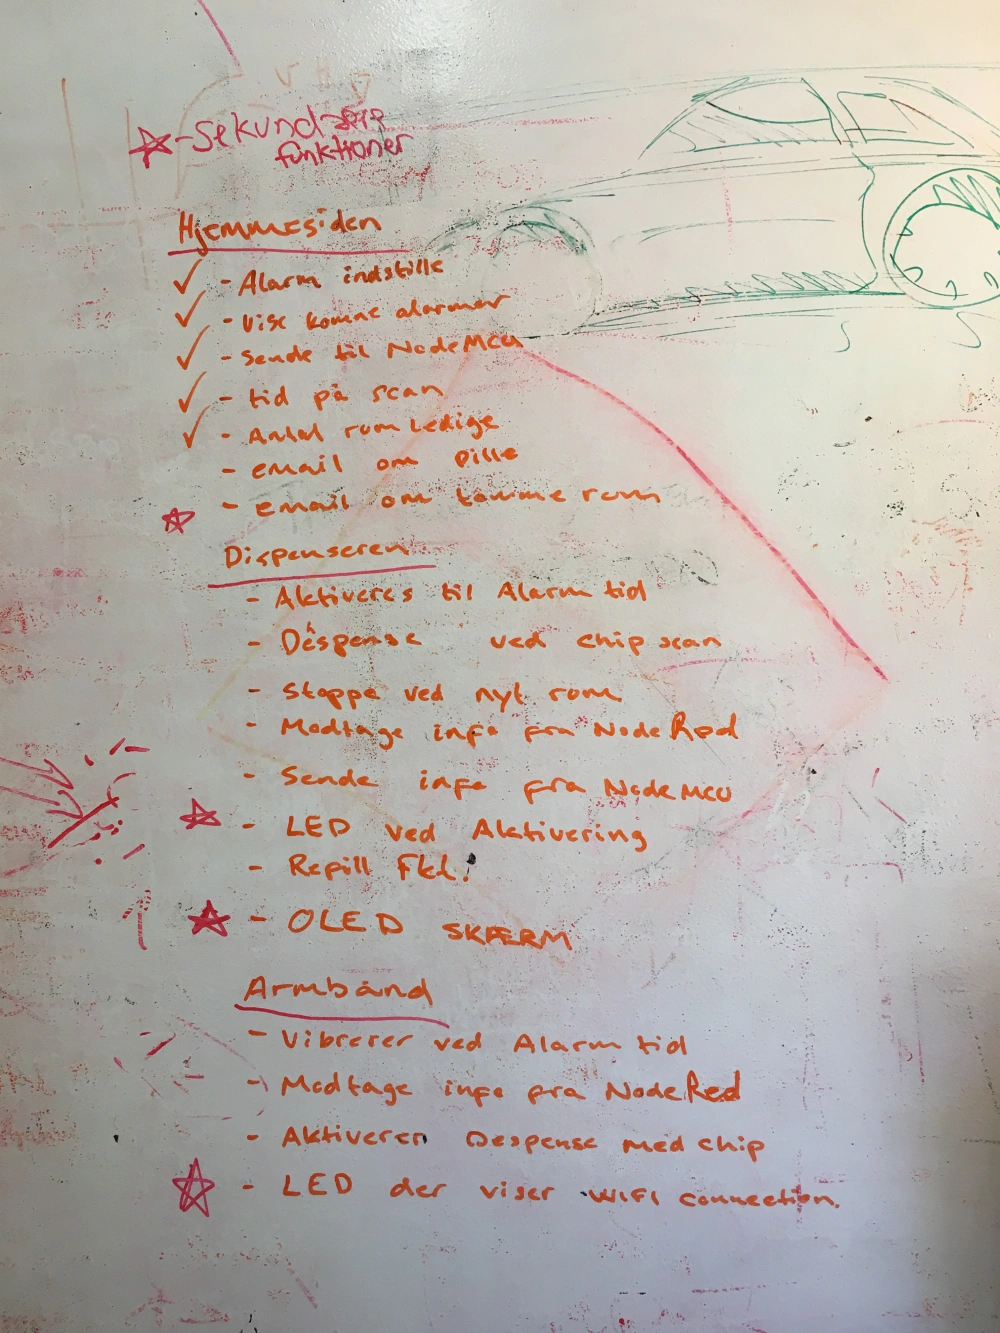 ☆-Sekundære
funktioner
Hjemmesiden
✓ - Alarm indstille
✓ - Vise komne alarmer
✓ - Sende til NodeMCU
✓ - tid på scan
✓ - Antal rum Ledige
- email om pille
☆ - email om tomme rum
Dispenseren
- Aktiveres til Alarm tid
- Despense ved chip scan
- Stoppe ved nyt rum
- Modtage info fra NodeRed
- Sende info fra NodeMCU
☆ - LED ved Aktivering
- Refill Fkt.
☆ - OLED SKÆRM
Armbånd
- Vibrerer ved Alarm tid
- Modtage info fra NodeRed
- Aktiverer Despense med chip
☆ - LED der viser WIFI connection.